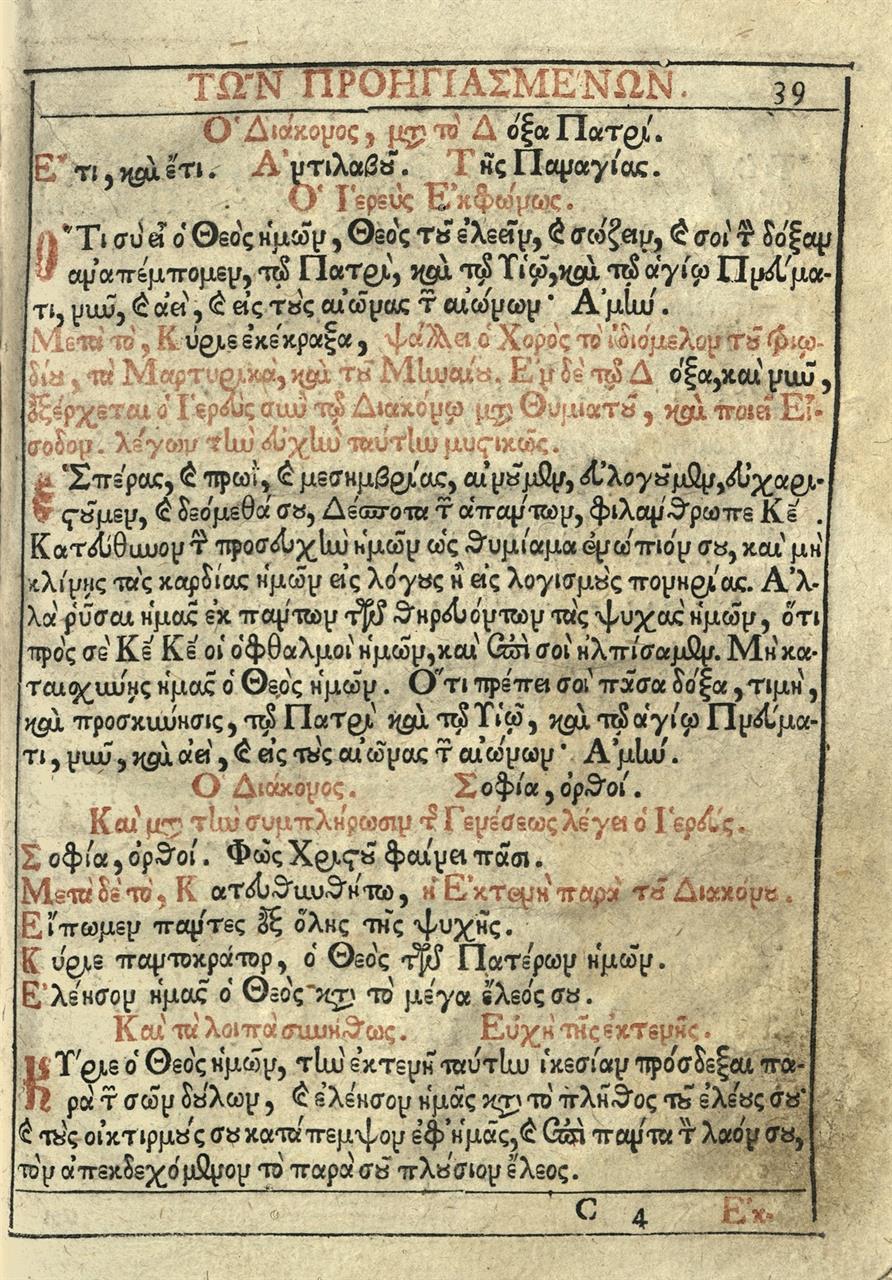 ΤΩ͂Ν ΠΡΟΗΓΙΑΣΜΕ´ΝΩΝ. 39
Ὁ Διάκονος, μτ̀ τὸ Δόξα Πατρί.
Ἔτι, καὶ ἔτι. Ἀντιλαβοῦ. Τῆς Παναγίας.
Ὁ Ἱερεὺς Ἐκφώνως.
Ὅτι σὺ εἶ ὁ Θεὸς ἡμῶν, Θεὸς τοῦ ἐλεεῖν, ϗ σώζειν, ϗ σοὶ τὴν δόξαν
ἀναπέμπομεν, τῷ Πατρὶ, καὶ τῷ Υἱῷ, καὶ τῷ ἁγίῳ Πνεύμα-
τι, νῦν, ϗ ἀεὶ, ϗ εἰς τοὺς αἰῶνας τῶν αἰώνων· Ἀμήν.
Μετὰ τὸ, Κύριε ἐκέκραξα, ψάλλει ὁ Χορὸς τὸ ἰδιόμελον τοῦ
τὰ Μαρτυρικὰ, καὶ τοῦ Μηναίου. Ἐν δὲ τῷ Δόξα, καὶ νῦν,
ἐξέρχεται ὁ Ἱερεὺς σὺν τῷ Διακόνῳ μτ̀ Θυμιατοῦ, καὶ ποιεῖ Εἴ-
σοδον. λέγων τὴν εὐχὴν ταύτην μυστικῶς.
Ἑσπέρας, ϗ πρωῒ, ϗ μεσημβρίας, αἰνοῦμεν, εὐλογοῦμεν, εὐχαρι-
στοῦμεν, ϗ δεόμεθά σου, Δέσποτα τῶν ἁπάντων, φιλάνθρωπε Κε̅.
Κατεύθυνον τὴν προσευχὴν ἡμῶν ὡς θυμίαμα ἐνώπιόν σου, καὶ μὴ
κλίνῃς τὰς καρδίας ἡμῶν εἰς λόγους ἢ εἰς λογισμοὺς πονηρίας. Ἀλ-
λὰ ῥῦσαι ἡμᾶς ἐκ πάντων τῶν θηρευόντων τὰς ψυχὰς ἡμῶν, ὅτι
πρὸς σὲ Κε̅ Κε̅ οἱ ὀφθαλμοὶ ἡμῶν, καὶ ἐπὶ σοὶ ἠλπίσαμεν. Μὴ κα-
ταισχύνῃς ἡμᾶς ὁ Θεὸς ἡμῶν. Ὅτι πρέπει σοὶ πᾶσα δόξα, τιμὴ,
καὶ προσκύνησις, τῷ Πατρὶ καὶ τῷ Υἱῷ, καὶ τῷ ἁγίῳ Πνεύμα-
τι, νῦν, καὶ ἀεὶ, ϗ εἰς τοὺς αἰῶνας τῶν αἰώνων· Ἀμήν.
Ὁ Διάκονος. Σοφία, ὀρθοί.
Καὶ μτ̀ τὴν συμπλήρωσιν τῆς Γενέσεως λέγει ὁ Ἱερεύς.
Σοφία, ὀρθοί. Φῶς Χριστοῦ φαίνει πᾶσι.
Μετὰ δὲ τὸ, Κατευθυνθήτω, ἡ Ἐκτενὴ παρὰ τοῦ Διακόνου.
Εἴπωμεν πάντες ἐξ ὅλης τῆς ψυχῆς.
Κύριε παντοκράτορ, ὁ Θεὸς τῶν Πατέρων ἡμῶν.
Ἐλέησον ἡμᾶς ὁ Θεὸς κτ̀ τὸ μέγα ἔλεός σου.
Καὶ τὰ λοιπὰ συνήθως. Εὐχὴ τῆς ἐκτενῆς.
Κύριε ὁ Θεὸς ἡμῶν, τὴν ἐκτενῆ ταύτην ἱκεσίαν πρόσδεξαι πα-
ρὰ τῶν σῶν δούλων, ϗ ἐλέησον ἡμᾶς κτ̀ τὸ πλῆθος τοῦ ἐλέους σου·
ϗ τοὺς οἰκτιρμούς σου κατάπεμψον ἐφ' ἡμᾶς, ϗ ἐπὶ πάντα τὸν λαόν σου,
τὸν ἀπεκδεχόμενον τὸ παρὰ σοῦ πλούσιον ἔλεος.
C 4 Ἐκ-